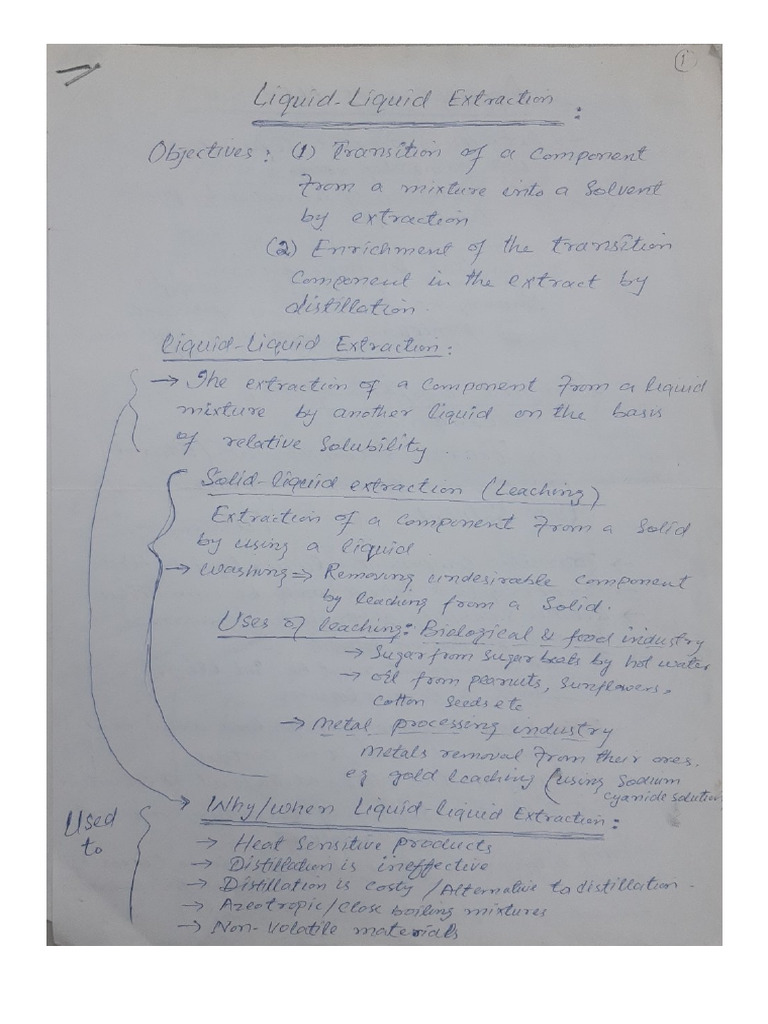 1
Liquid-Liquid Extraction :
Objectives : (1) Transition of a Component
From a mixture into a Solvent
by extraction
(2) Enrichment of the transition
Component in the extract by
distillation.
Liquid-Liquid Extraction :
→ The extraction of a Component From a liquid
mixture by another liquid on the basis
of relative Solubility.
Solid-liquid extraction (Leaching)
Extraction of a Component From a Solid
by using a liquid.
→ Washing ⇒ Removing undesirable Component
by leaching from a Solid.
Uses of leaching : Biological & food industry
→ Sugar from Sugar beats by hot water
→ oil from peanuts, Sunflowers,
Cotton Seeds etc
→ Metal processing industry
Metals removal From their ores.
eg gold leaching (using Sodium
cyanide solution
Used
to
Why/when Liquid-liquid Extraction :
→ Heat Sensitive products
→ Distillation is ineffective
→ Distillation is costy / Alternative to distillation.
→ Azeotropic/close boiling mixtures
→ Non-Volatile materials